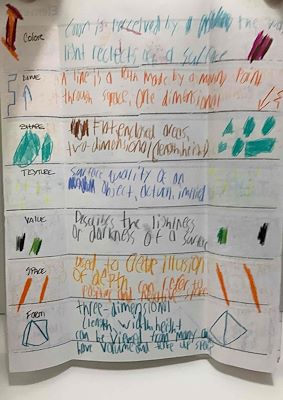 Color
Color is perceived by the way
light reflects of a surface
LINE
A line is a path made by a moving point
through space, one dimensional
SHAPE
Flat enclosed areas,
two-dimensional (length, width)
TEXTURE
Surface quality of an
object, actual, implied
VALUE
Describes the lightness
or darkness of a surface
SPACE
used to create illusion
of depth
positive and negative space
Form
three-dimensional
length width height
can be viewed from many
have volume and take up space